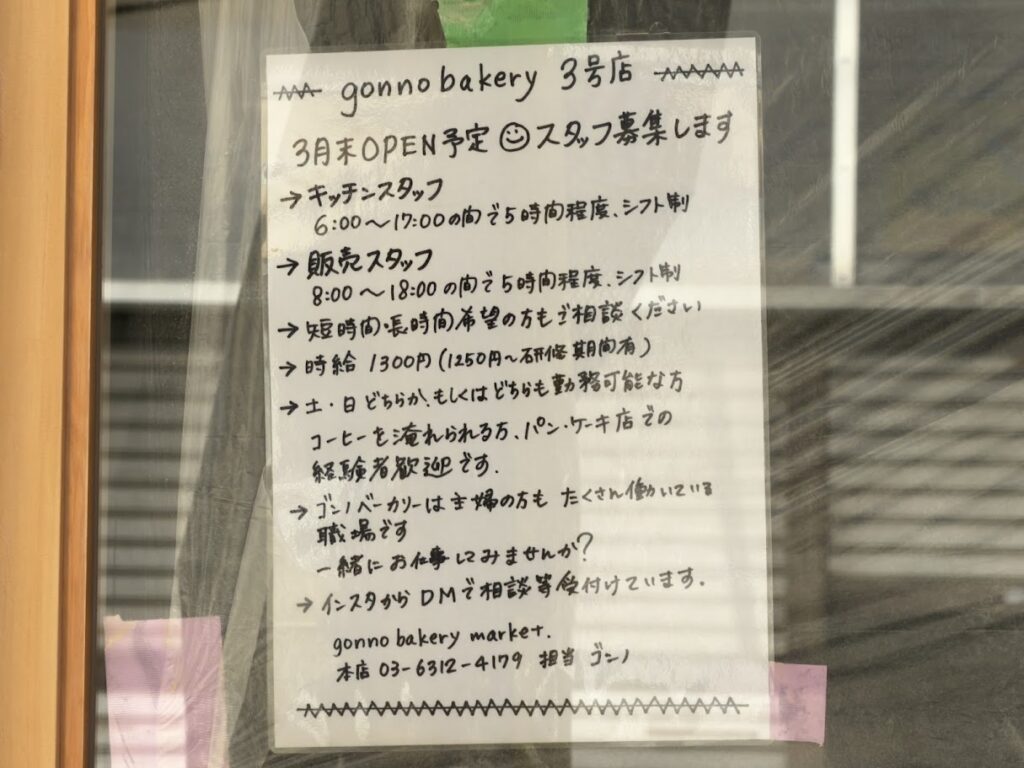 gonno bakery 3号店
3月末OPEN予定☺スタッフ募集します
→ キッチンスタッフ
6:00〜17:00の間で5時間程度、シフト制
→ 販売スタッフ
8:00〜18:00の間で5時間程度、シフト制
→ 短時間・長時間希望の方もご相談ください
→ 時給 1300円(1250円〜研修期間有)
→ 土・日どちらか、もしくはどちらも勤務可能な方
コーヒーを淹れられる方、パン・ケーキ店での
経験者歓迎です.
→ ゴンノベーカリーは主婦の方も たくさん働いている
職場です
一緒にお仕事してみませんか?
→ インスタからDMで相談等受付けています.
gonno bakery market.
本店 03-6312-4179 担当 ゴンノ